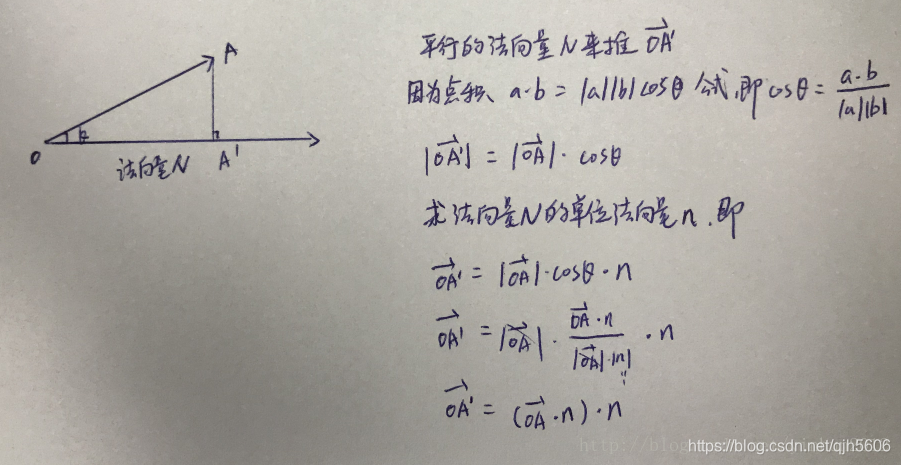 A
O
法向量N
A'
平行的法向量N来推 OA'
因为点积、a·b = |a||b|cosθ 公式,即cosθ = a·b / |a||b|
|OA'| = |OA|·cosθ
求法向量N的单位法向量n.即
OA' = |OA|·cosθ·n
OA' = |OA| · OA·n / |OA|·|n| · n
OA' = (OA·n)·n
https://blog.csdn.net/qjh5606